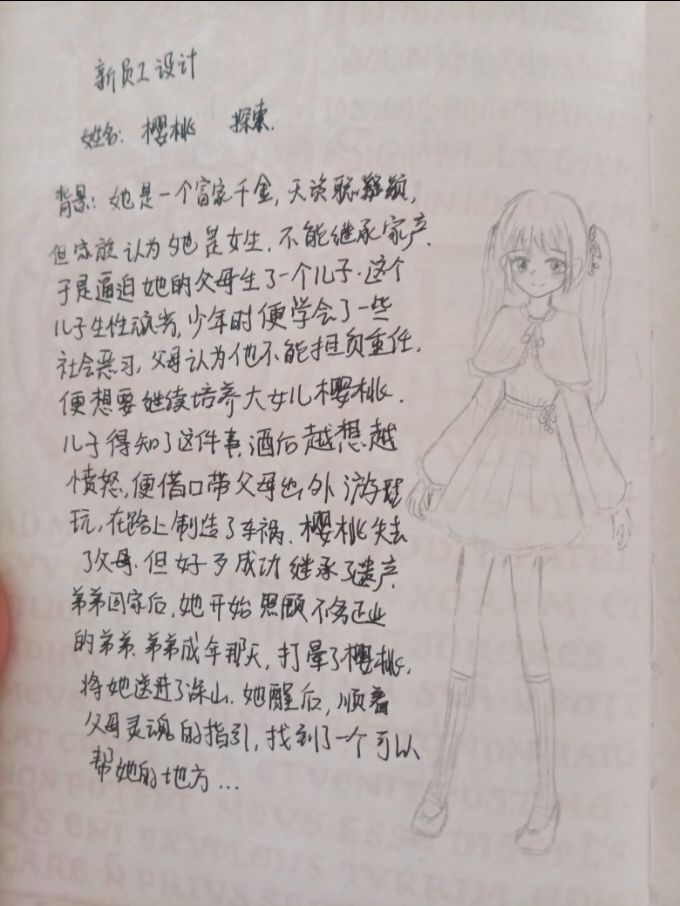 新员工设计
姓名: 樱桃 探索.
背景: 她是一个富家千金, 天资聪颖,
但家族认为她是女生, 不能继承家产.
于是逼迫她的父母生了一个儿子. 这个
儿子生性顽劣, 少年时便学会了一些
社会恶习, 父母认为他不能担负重任,
便想要继续培养大女儿樱桃.
儿子得知了这件事, 酒后越想越
愤怒, 便借口带父母出外游
玩, 在路上制造了车祸. 樱桃失去
了父母. 但好歹成功继承了遗产
弟弟回家后, 她开始照顾不务正业
的弟弟. 弟弟成年那天, 打晕了樱桃,
将她送进了深山. 她醒后, 顺着
父母灵魂的指引, 找到了一个可以
帮她的地方...